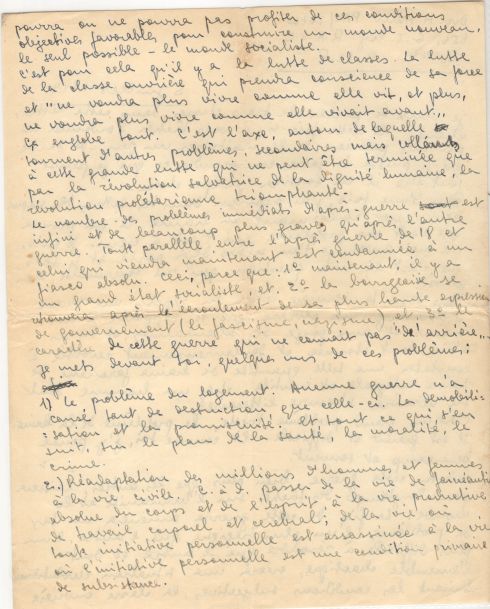 pourra ou ne pourra pas profiter de ces conditions
objectives favorables pour construire un monde nouveau,
le seul possible - le monde socialiste.
C'est pour cela qu'il y a la lutte de classes. La lutte
de la classe ouvrière qui prendra conscience de sa force
et "ne voudra plus vivre comme elle vit, et plus,
ne voudra plus vivre comme elle vivait avant".
Ça englobe tout. C'est l'axe, autour de laquelle
tournent d'autres problèmes, secondaires mais collants
à cette grande lutte qui ne peut être terminée que
par la révolution salvatrice de la dignité humaine, la
révolution prolétarienne triomphante.
Le nombre des problèmes immédiats d'après-guerre est
infini et de beaucoup plus grave, qu'après l'autre
guerre. Toute parallèle entre l'après guerre de 18 et
celui qui viendra maintenant est condamnée à un
fiasco absolu. Ceci, parce que: 1º maintenant, il y a
un grand état socialiste, et 2º la bourgeoisie se
trouvera après l'écroulement de sa plus haute expression
de gouvernement (le fascisme, nazisme) et, 3º le
caractère de cette guerre qui ne connait pas "de l'arrière".
Je mets devant toi, quelques uns de ces problèmes:
1) Le problème du logement. Aucune guerre n'a
causé tant de destruction, que celle-ci. La démobili-
sation et la promiscuité. Et tout ce qui s'en
suit, sur le plan de la santé, la moralité, le
crime.
2.) Réadaptation des millions d'hommes et femmes
à la vie civile. C. à d. passer de la vie de fainéantise
absolue du corps et de l'esprit, à la vie productive
de travail corporel et cérébral; de la vie où
toute initiative personnelle est assassinée à la vie
où l'initiative personnelle est une condition primaire
de subsistance.